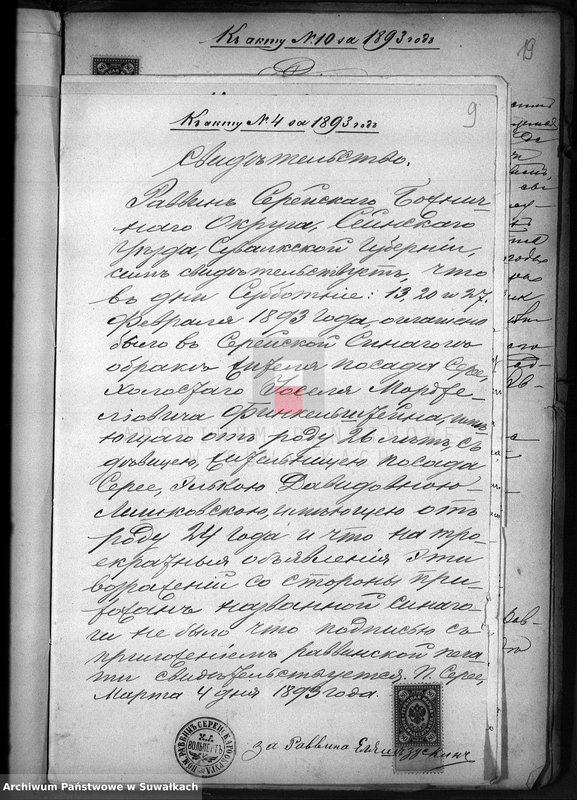 Къ акту № 10 за 1893 годъ
19
Къ акту № 4 за 1893 годъ
9
Свидѣтельство.
Раввинъ Серейскаго Божнич-
наго Округа, Сейнскаго
Уѣзда, Сувалкской Губерніи,
симъ свидѣтельствуетъ, что
въ дни Субботніе: 13, 20 и 27
Февраля 1893 года оглашено
было въ Серейской Синагогѣ
о бракѣ жителя посада Серее,
холостаго Іоселя Мордхе-
ліовича Финкельштейна, имѣ-
ющаго отъ роду 26 лѣтъ, съ
дѣвицею, жительницею посада
Серее, Гълькою Давидовною
Лишковскою, имѣющею отъ
роду 24 года и что на тро-
екратныя объявленія эти
возраженій со стороны при-
хожанъ названной синаго-
ги не было что подписью съ
приложеніемъ раввинской печа-
ти свидѣтельствуется. П. Серее,
Марта 4 дня 1893 года.
за Раввина
ПОМ. РАВВИНЪ СЕРЕЙСКАГО ОКРУГА
Х. І.
ВОЛЬПЕРТЪ
ARCHIWUM PAŃSTWOWE
W SUWAŁKACH
Archiwum Państwowe w Suwałkach